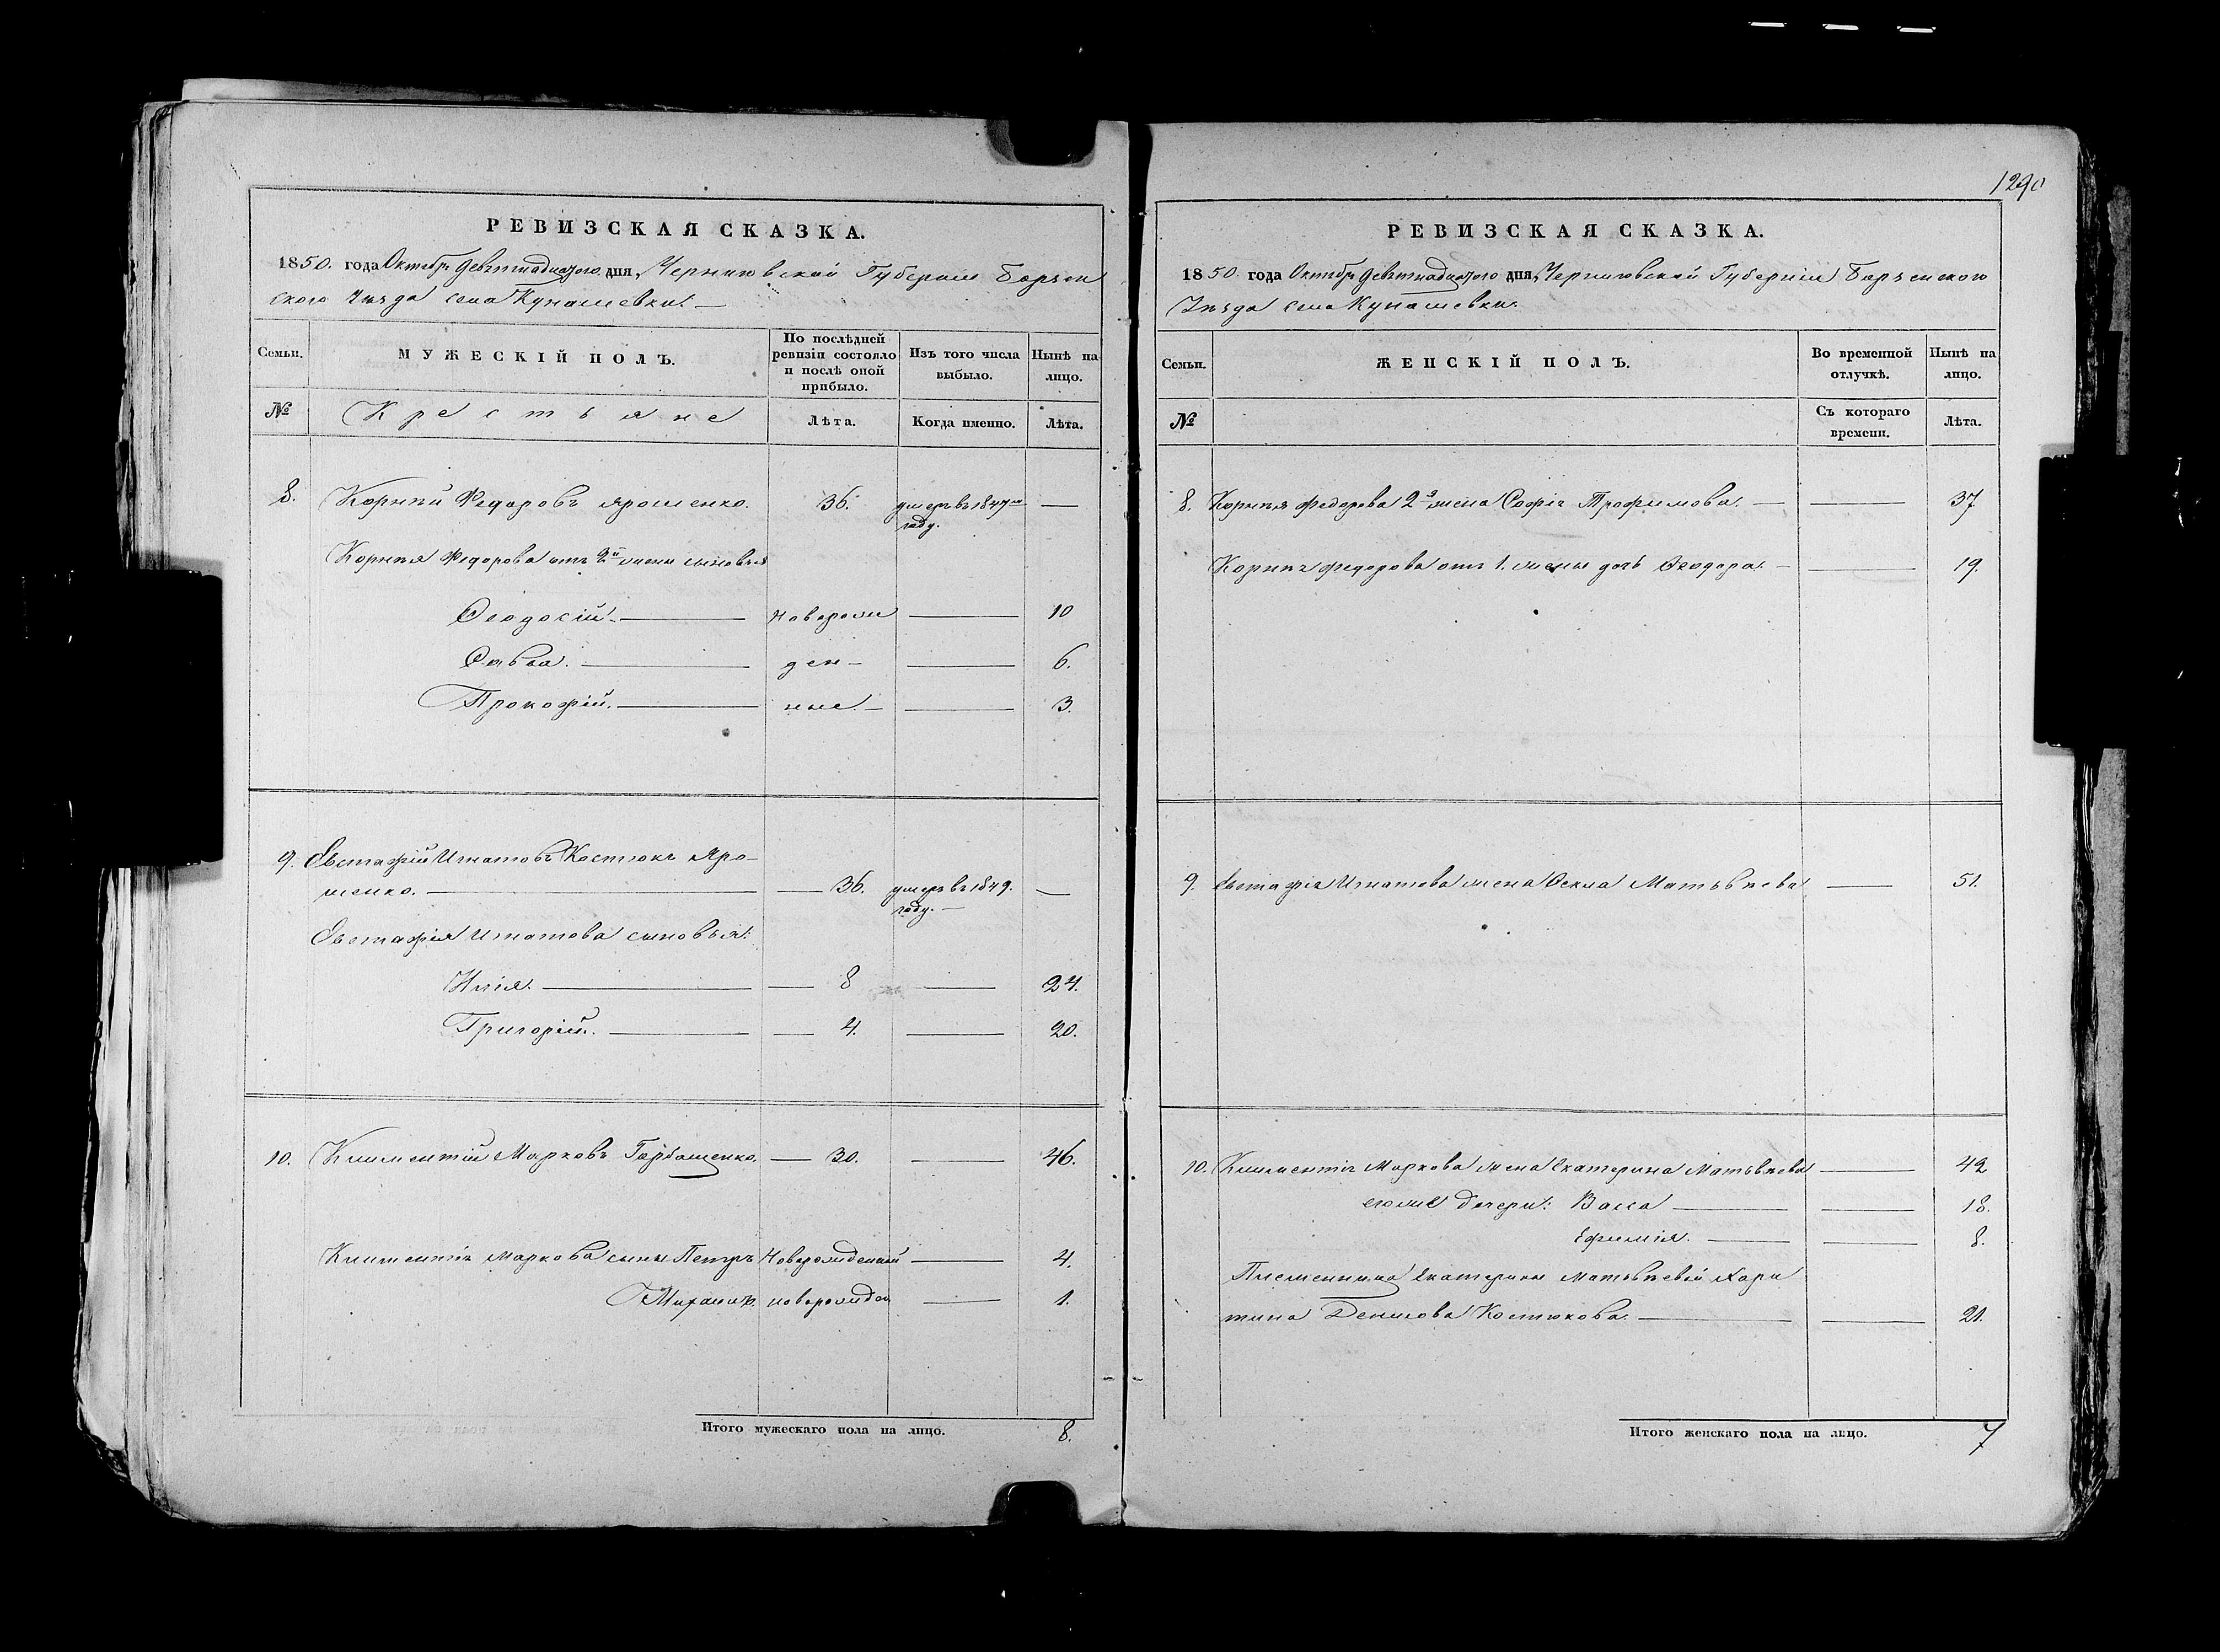 1290
РЕВИЗСКАЯ СКАЗКА.
1850. года Октября девятнадцатого дня, Черниговской Губернии Борзен
ского Уѣзда села Кунашевки. —
Семьи.
МУЖЕСКІЙ ПОЛЪ.
По послѣдней
ревизіи состояло
и послѣ оной
прибыло.
Изъ того числа
выбыло.
Нынѣ на
лицо.
№
Крестьяне
Лѣта.
Когда именно.
Лѣта.
8. Корнѣй Федоровъ Ярошенко. 36. умеръ въ 1847м —
году.
Корнѣя Федорова отъ 2й жены сыновья
Ѳеодосій. — новорож — 10
Савва. — ден — — 6.
Прокофій. — ные. — — 3.
9. Евстафій Игнатовъ Костюкъ Яро-
шенко. — 36. умеръ въ 1849. —
году. —
Евстафія Игнатова сыновья:
Илія. — 8 — 24.
Григорій. — 4. — 20.
10. Климентій Марковъ Горбащенко. — 30. — 46.
Климентія Маркова сыны Петръ Новорожденный — 4.
Михаилъ. новорожден — 1.
Итого мужескаго пола на лицо. 8.
РЕВИЗСКАЯ СКАЗКА.
1850 года Октября девятнадцатого дня, Черниговской Губерніи Борзенского
Уѣзда села Кунашевки.
Семьи.
ЖЕНСКІЙ ПОЛЪ.
Во временной
отлучкѣ.
Нынѣ на
лицо.
№
Съ котораго
времени.
Лѣта.
8. Корнѣя Федорова 2я жена Софія Трофимова. — — 37.
Корнѣя Федорова отъ 1. жены дочь Ѳеодора. — — 19.
9. Евстафія Игнатова жена Ѳекла Матвѣева — 51.
10. Климентія Маркова жена Екатерина Матвѣева — 42
его же дочери: Васса — — 18.
Ефимія. — — 8.
Племенница Екатерины Матвѣевой Хари
тина Денисова Костюкова. — — 21.
Итого женскаго пола на лицо. 7